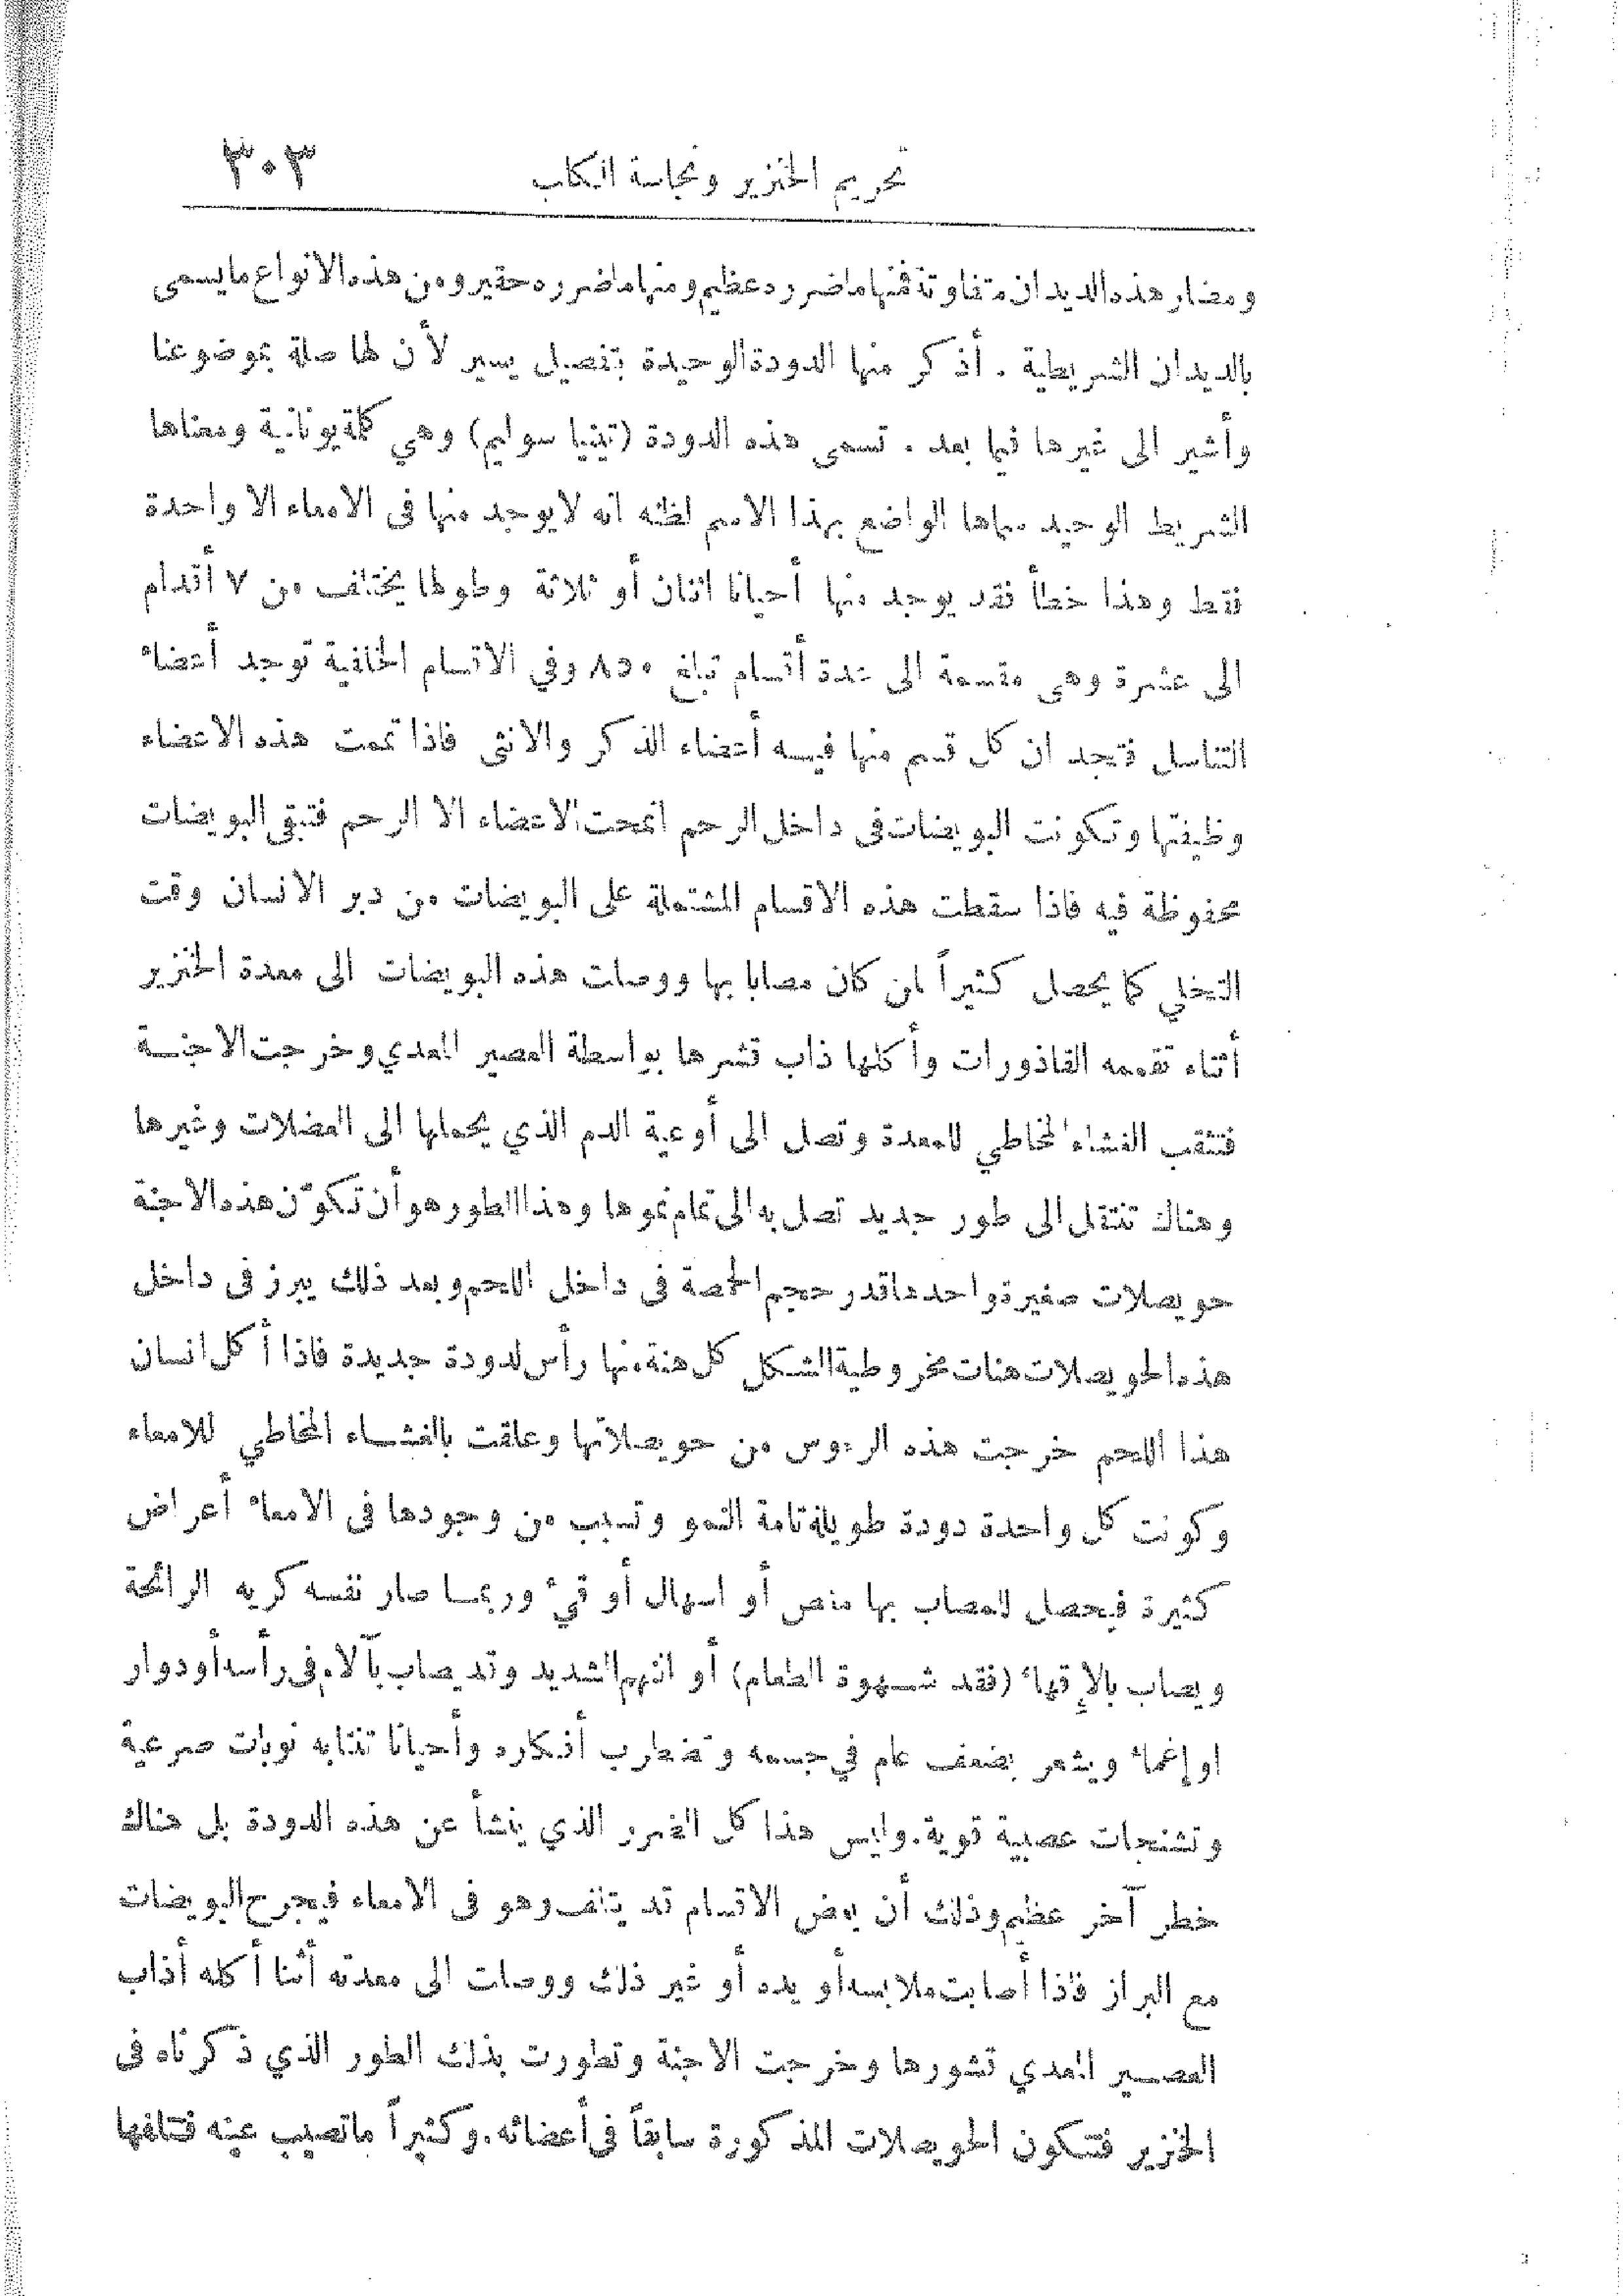 تحريم الخنزير ونجاسة الكلب ٣٠٣
ومضار هذه الديدان متفاوتة فمنها ما ضرره عظيم ومنها ما ضرره حقير ومن هذه الانواع ما يسمى
بالديدان الشريطية . أذكر منها الدودة الوحيدة بتفصيل يسير لأن لها صلة بموضوعنا
وأشير الى غيرها فيما بعد . تسمى هذه الدودة (تينيا سوليم) وهي كلمة يونانية ومعناها
الشريط الوحيد سماها الواضع بهذا الاسم لظنه انه لا يوجد منها فى الامعاء الا واحدة
فقط وهذا خطأ فقد يوجد منها أحيانا اثنان أو ثلاثة وطولها يختلف من ٧ أقدام
الى عشرة وهى مقسمة الى عدة أقسام تبلغ ٨٥٠ وفي الاقسام الخلفية توجد أعضاء
التناسل فتجد ان كل قسم منها فيه أعضاء الذكر والانثى فاذا تممت هذه الاعضاء
وظيفتها وتكونت البويضات فى داخل الرحم انمحت الاعضاء الا الرحم فتبقى البويضات
محفوظة فيه فاذا سقطت هذه الاقسام المشتملة على البويضات من دبر الانسان وقت
التخلي كما يحصل كثيراً لمن كان مصابا بها ووصلت هذه البويضات الى معدة الخنزير
أثناء تقممه القاذورات وأكلها ذاب قشرها بواسطة العصير المعدي وخرجت الاجنة
فتثقب الغشاء المخاطي للمعدة وتصل الى أوعية الدم الذي يحملها الى العضلات وغيرها
وهناك تنتقل الى طور جديد تصل به الى تمام نموها وهذا الطور هو أن تكوّن هذه الاجنة
حويصلات صغيرة واحدها قدر حجم الحمصة فى داخل اللحم وبعد ذلك يبرز فى داخل
هذه الحويصلات هنات مخروطية الشكل كل هنة منها رأس لدودة جديدة فاذا أكل انسان
هذا اللحم خرجت هذه الرءوس من حويصلاتها وعلقت بالغشاء المخاطي للامعاء
وكونت كل واحدة دودة طويلة تامة النمو وتسبب من وجودها فى الامعاء أعراض
كثيرة فيحصل للمصاب بها مغص أو اسهال أو قيء وربما صار نفسه كريه الرائحة
ويصاب بالإقهاء (فقد شهوة الطعام) أو النهم الشديد وقد يصاب بآلام فى رأسه أو دوار
او إغماء ويشعر بضعف عام في جسمه وتضطرب أفكاره وأحيانا تنتابه نوبات صرعية
وتشنجات عصبية قوية. وليس هذا كل الضرر الذي ينشأ عن هذه الدودة بل هناك
خطر آخر عظيم وذلك أن بعض الاقسام قد يتلف وهو فى الامعاء فيجرح البويضات
مع البراز فاذا أصابت ملابسه أو يده أو غير ذلك ووصلت الى معدته أثنا أكله أذاب
العصير المعدي قشورها وخرجت الاجنة وتطورت بذلك الطور الذي ذكرناه فى
الخنزير فتتكون الحويصلات المذكورة سابقاً فى أعضائه. وكثيراً ما تصيب عينه فتتلفها